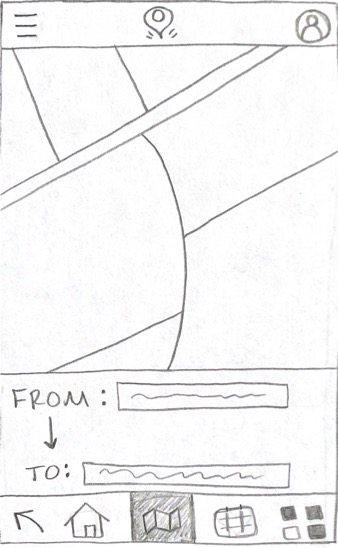 FROM:
TO: